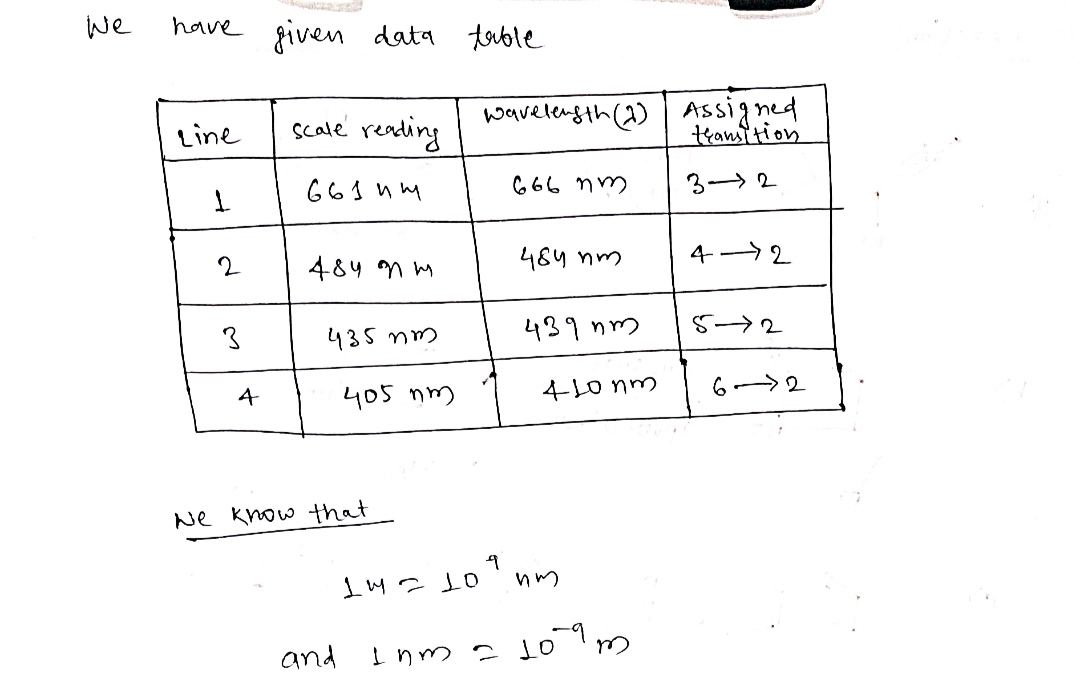 We have given data table
Line scale reading wavelength(λ) Assigned transition
1 661 nm 666 nm 3→2
2 484 nm 484 nm 4→2
3 435 nm 439 nm 5→2
4 405 nm 410 nm 6→2
We know that
1m = 10⁹ nm
and 1 nm = 10⁻⁹ m